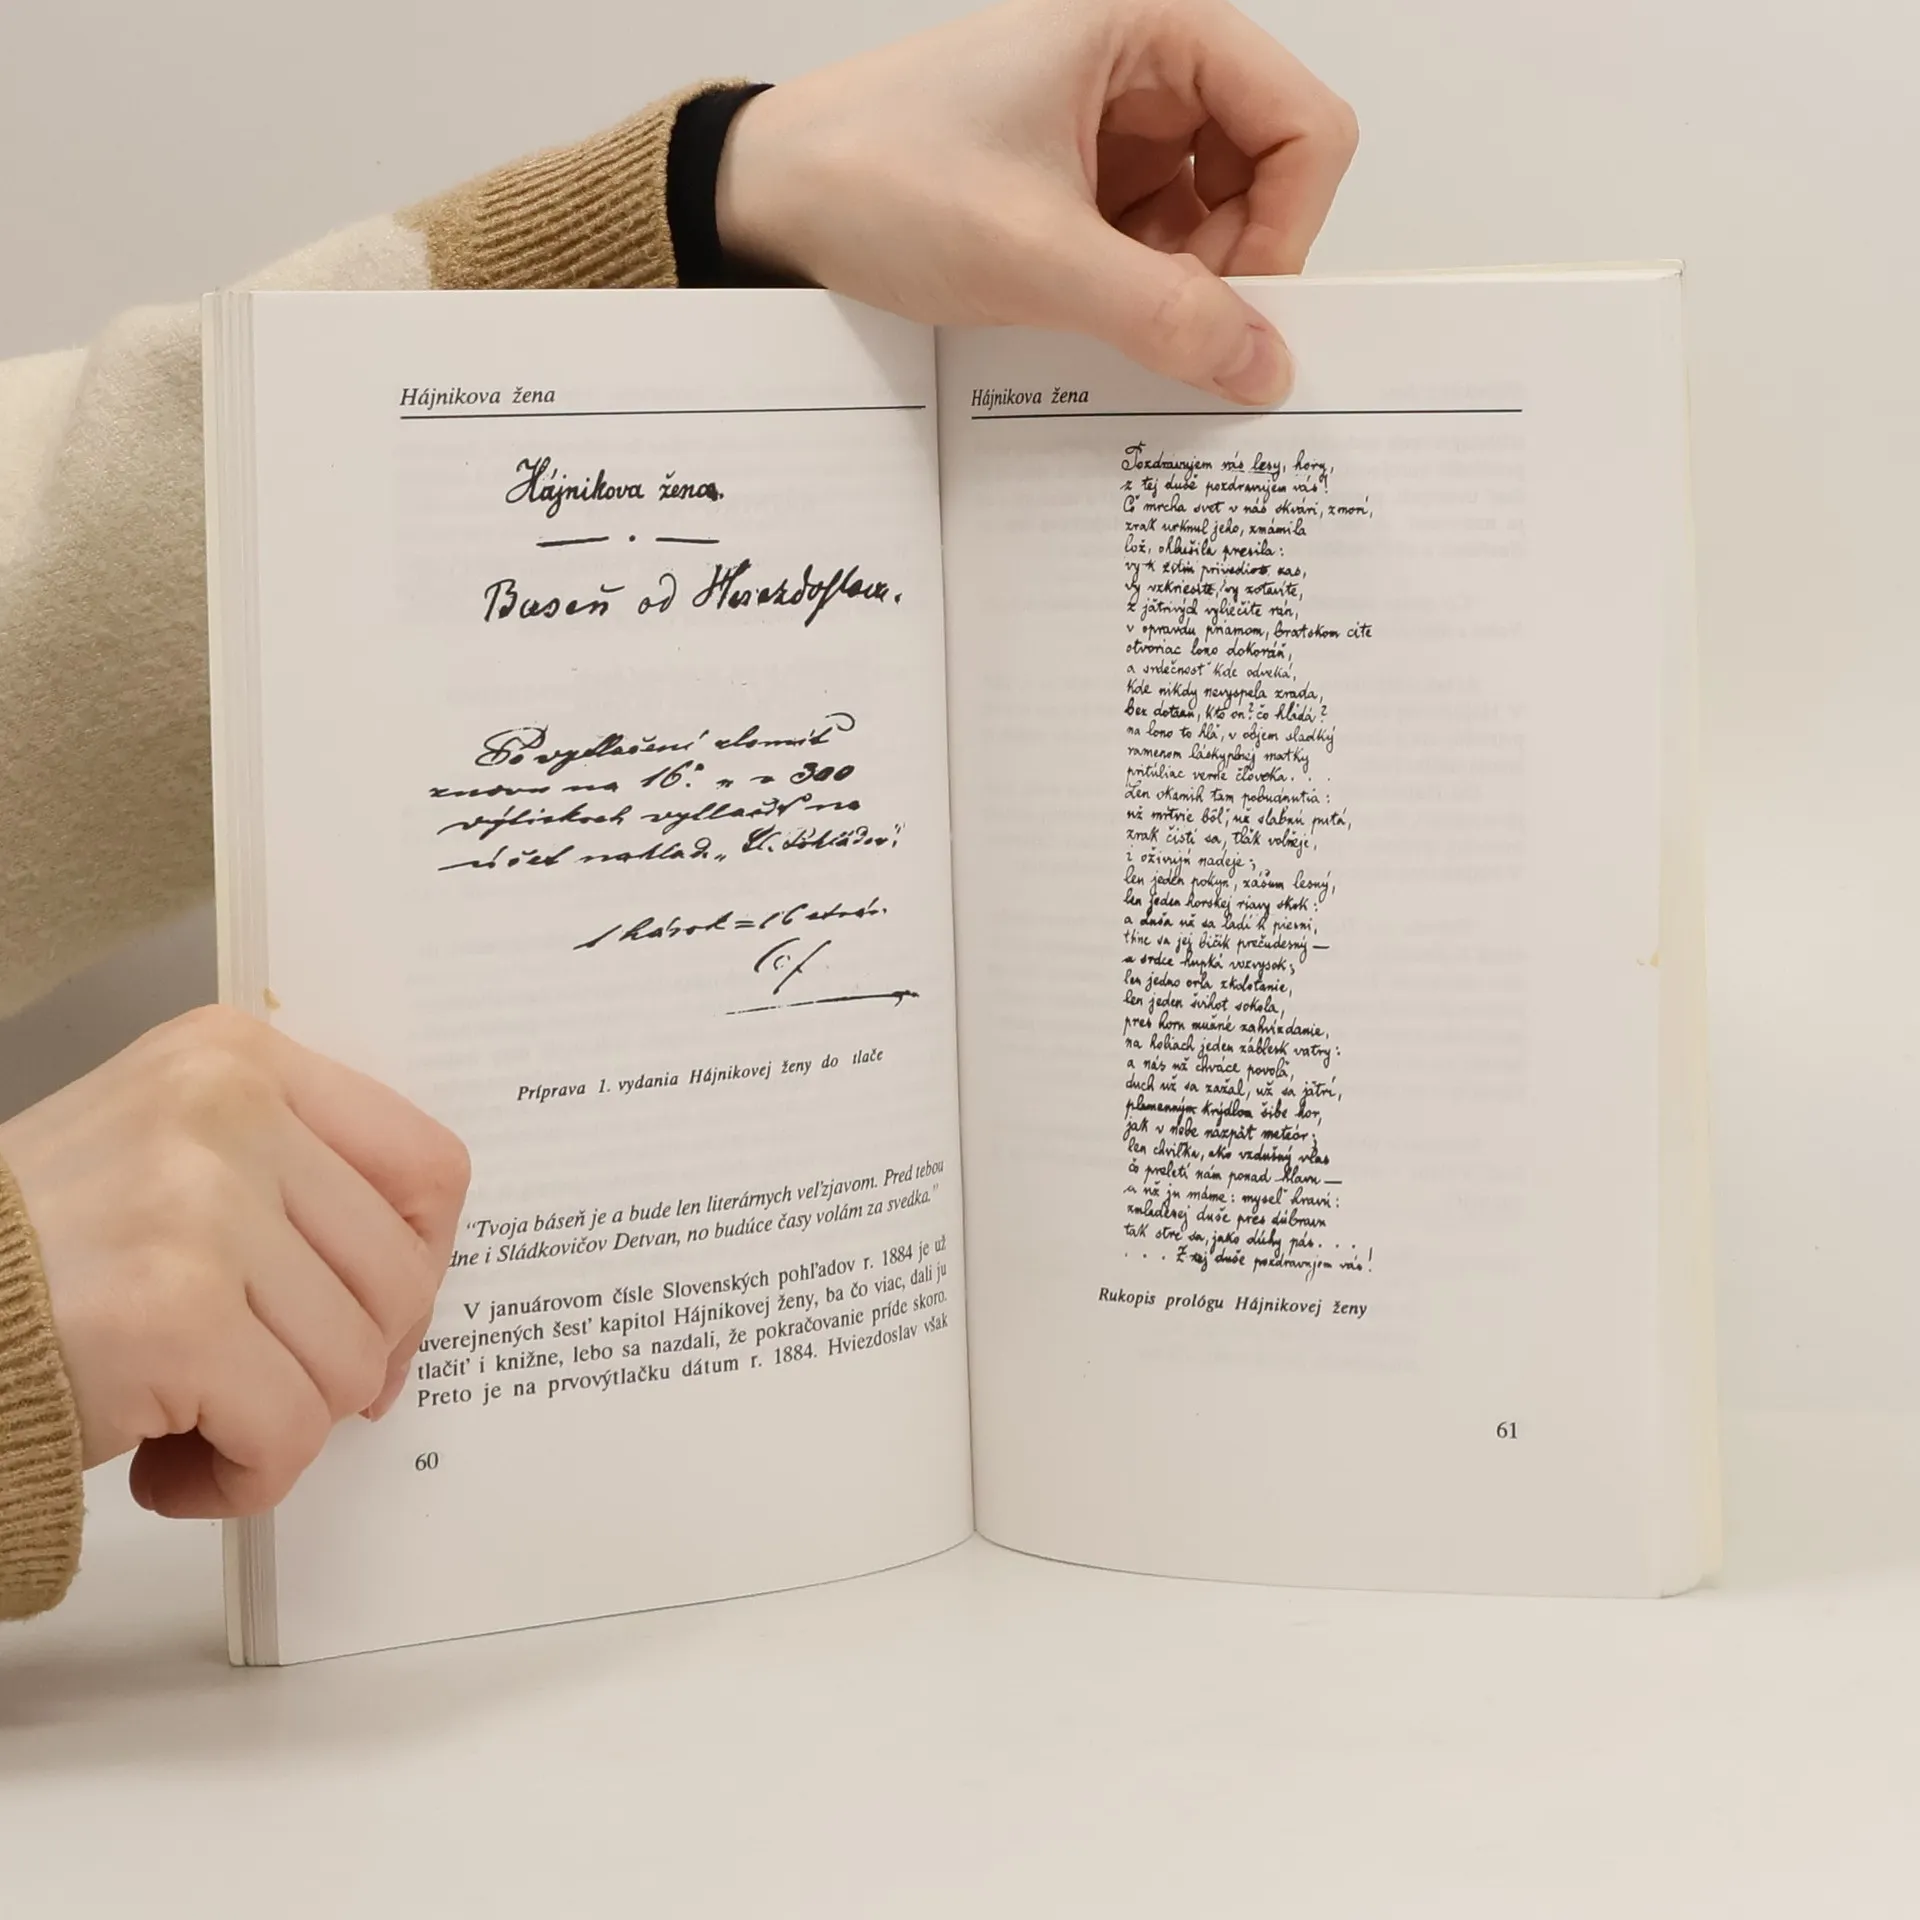 Hájnikova žena
Hájnikova žena.
Báseň od Hviezdoslava.
Po vytlačení zlomiť
znovu na 16.° 300
výtiskoch vytlačiť na
účet naklad. „Sl. Pohľadov“
1 hárok = 16 strán.
Príprava 1. vydania Hájnikovej ženy do tlače
“Tvoja báseň je a bude len literárnych veľzjavom. Pred tebou
dne i Sládkovičov Detvan, no budúce časy volám za svedka.”
V januárovom čísle Slovenských pohľadov r. 1884 je už
uverejnených šesť kapitol Hájnikovej ženy, ba čo viac, dali ju
tlačiť i knižne, lebo sa nazdali, že pokračovanie príde skoro.
Preto je na prvovýtlačku dátum r. 1884. Hviezdoslav však
60
Hájnikova žena
Pozdravujem vás lesy, hory,
z tej duše pozdravujem vás!
Čo mrcha svet v nás skvári, zmorí,
zrak urknul jeho, zmámila
lož, ohlušila presila:
vy k žitiu privediete zas,
vy vzkriesite, vy zotavíte,
z jätrivých vyliečite rán,
v opravdu priamom, bratskom cite
otvoriac lono dokorán,
a srdečnosť kde odveká,
kde nikdy nevyspela zrada,
bez dotazu, kto on? čo hľadá?
na lono to hlá, v objem sladký
ramenom láskyplnej matky
pritúliac verne človeka. . .
Len okamih tam pobudnutia:
už mŕtvie bôľ, už slabnú putá,
zrak čistí sa, tlak voľneje,
i ožívujú nadeje;
len jeden pokyn, zášum lesný,
len jeden horskej riavy skok:
a duša už sa ladí k piesni,
tkne sa jej bičík prečudesný —
a srdce hupká vozvysok;
len jedno orla zkolotanie,
len jeden švihot sokola,
pres horu mužné zahvízdanie,
na holiach jeden záblesk vatry:
a nás už chváce povola,
duch už sa zažal, už sa jätrí,
plamenným krýdlom šibe hor,
jak v nebe nazpät meteor;
len chvíľka, ako vzdušný vlas
čo preletí nám ponad hlavu —
a už ju máme: myseľ hravú:
zmladenej duše pres dúbravu
tak stre sa, jako dúhy pás. . . .
. . . Z tej duše pozdravujem vás!
Rukopis prológu Hájnikovej ženy
61